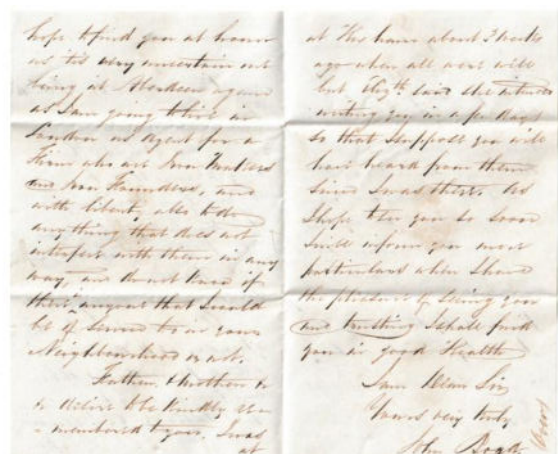 hope to find you at home
as its very uncertain our
being at Aberdeen again
as I am going to live in
London as Agent for a
Firm who are Iron Makers
and Iron Founders, and
with liberty also to do
any thing that does not
interfere with them in any
way, and do not know if
there's anyone that I could
be of service to in your
Neighbourhood or not.
Father & Mother
desire to be kindly re
membered to you. I was
at
at the house about 3 weeks
ago when all were well
but Eliz.th said she intended
writing you in a few days
so that I suppose you will
have heard from them
since I was there. As
I hope to see you so soon
I will inform you more
particulars when I have
the pleasure of seeing you
and trusting I shall find
you in good Health
I am Dear Sir
Yours very truly
John